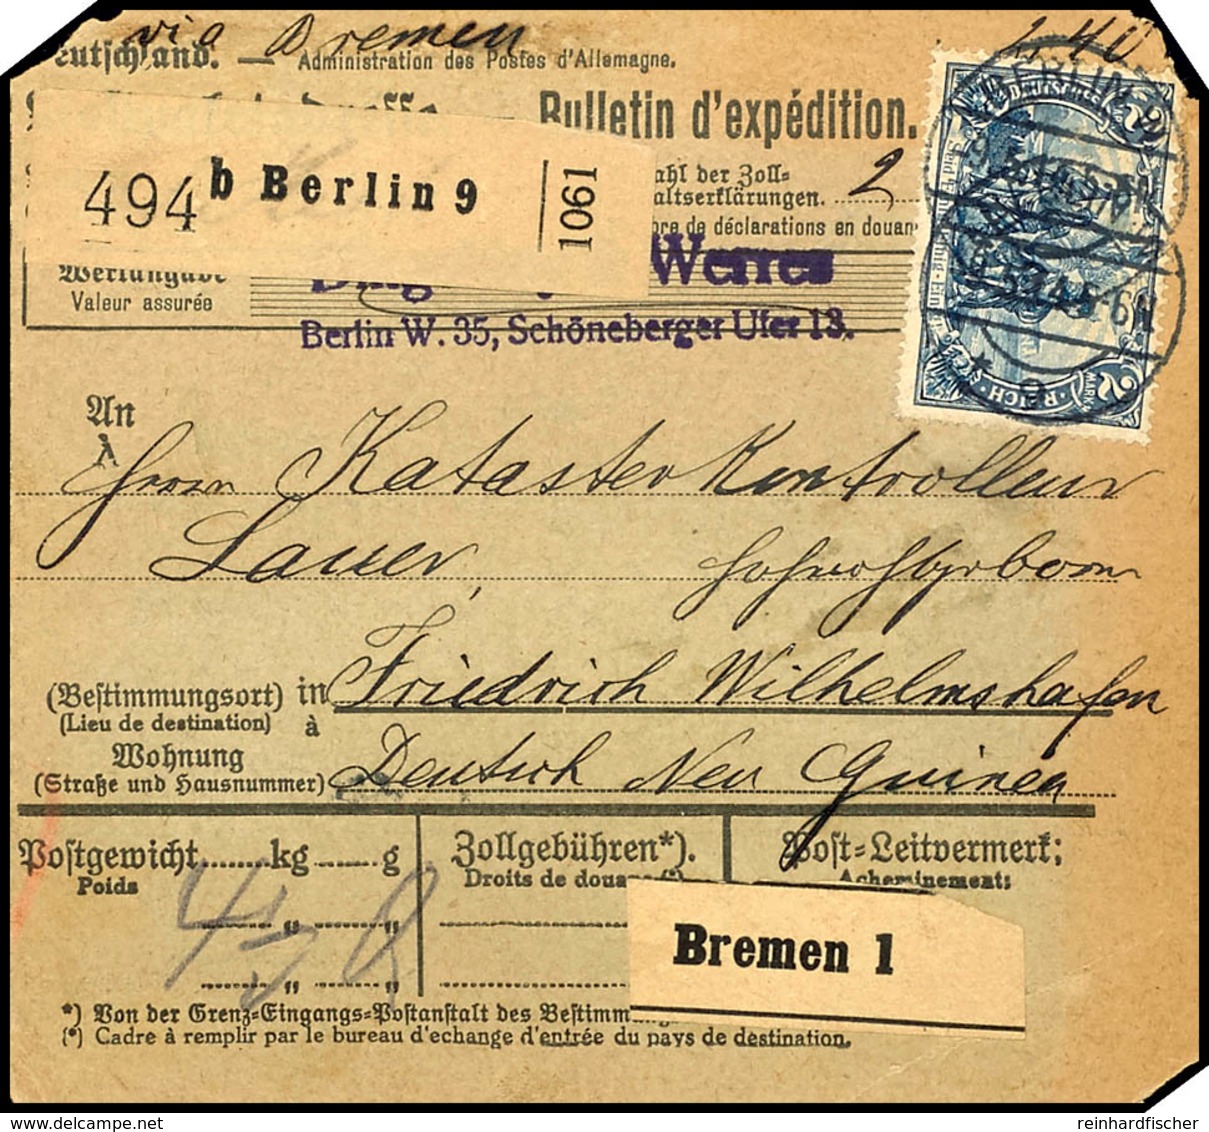 via Bremen
2,40
Deutschland. — Administration des Postes d'Allemagne.
Bulletin d'expédition.
494 b Berlin 9 1061
ahl der Zoll-
altserklärungen. 2
bre de déclarations en douan
Wertangabe
Valeur assurée
Werres
Berlin W. 35, Schöneberger Ufer 13.
BERLIN
DEUTSCHES REICH
2 MARK
An
À
Herrn Katasterkontrolleur
Lauer, Hochwohlgeboren
(Bestimmungsort) in Friedrich Wilhelmshafen
(Lieu de destination) à
Wohnung
(Straße und Hausnummer) Deutsch Neu Guinea
Postgewicht kg g
Poids
Zollgebühren*).
Droits de douane(*)
Post-Leitvermerk:
Acheminement:
Bremen 1
*) Von der Grenz-Eingangs-Postanstalt des Bestimmung
(*) Cadre à remplir par le bureau d'échange d'entrée du pays de destination.
reinhardfischer